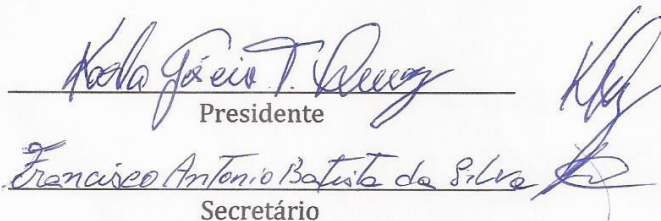 Karla T.
Presidente
Francisco Antonio Batista da Silva
Secretário